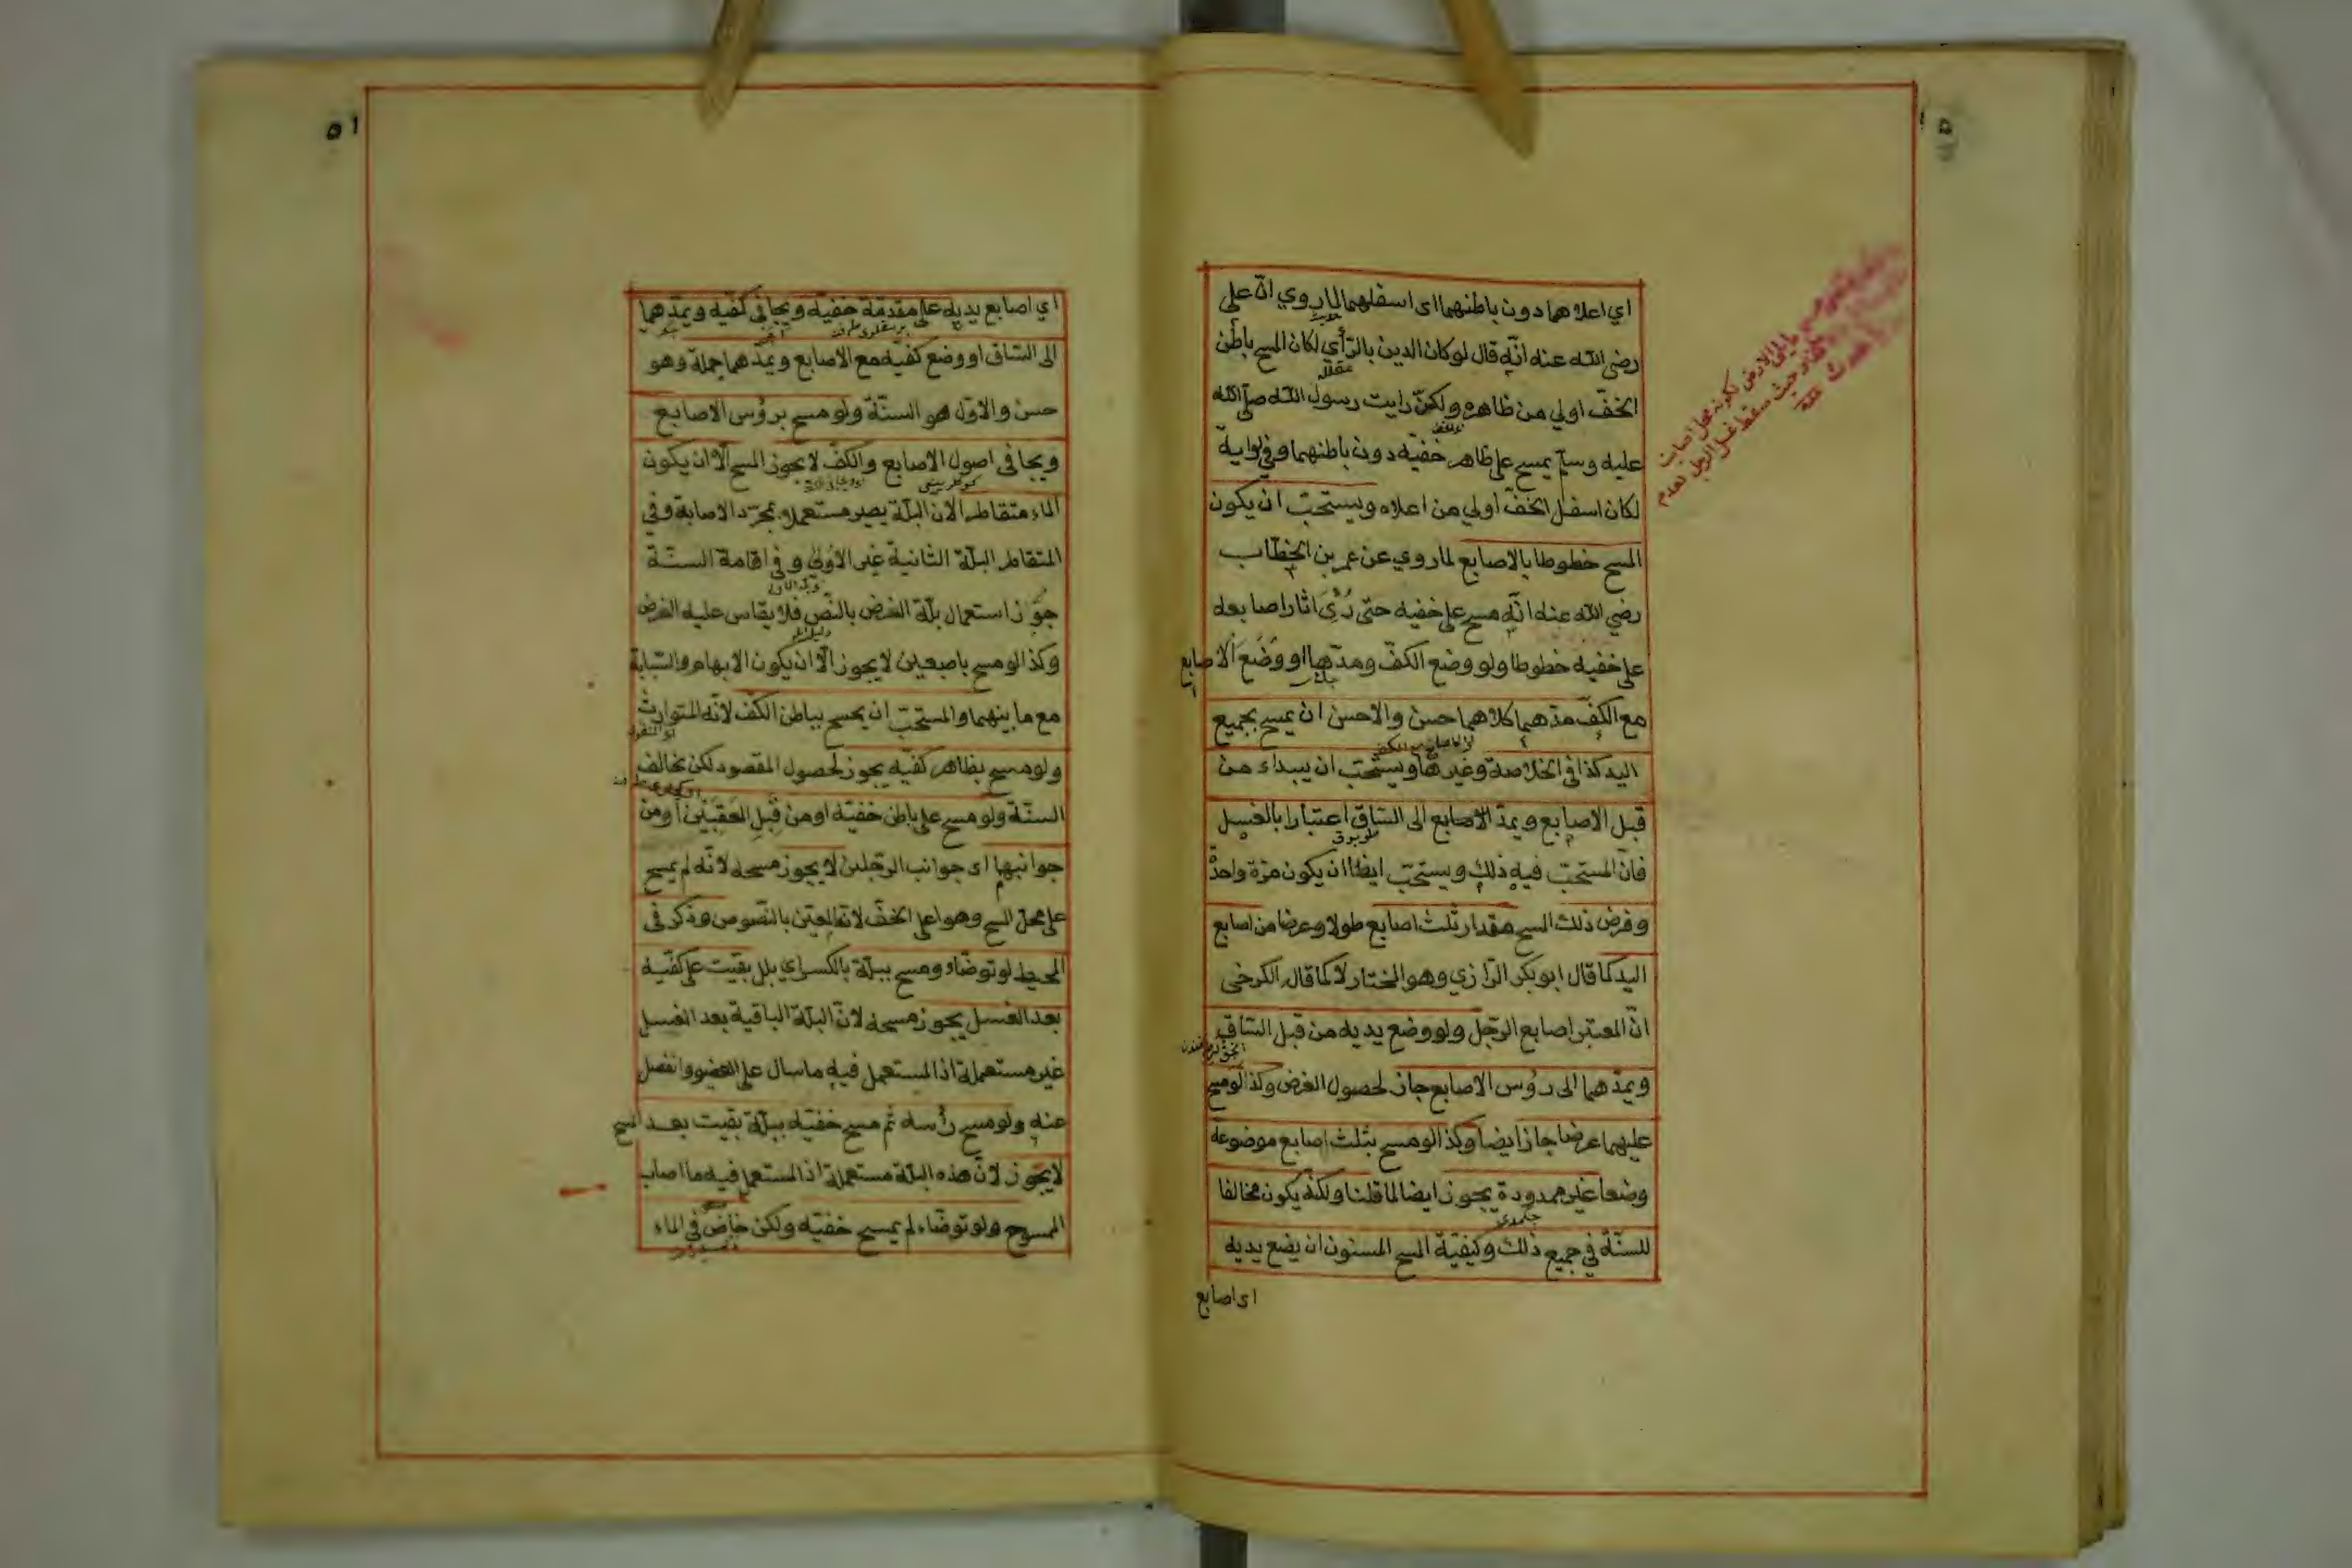 اي اعلاهما دون باطنهما اى اسفلهما لما روي انّ على
رضى الله عنه انّه قال لو كان الدين بالرّأي لكان المسح باطن
الخفّ اولي من ظاهره ولكنّ رايت رسول الله صلى الله
عليه وسلم يمسح على ظاهر خفّيه دون باطنهما وفي رواية
لكان اسفل الخفّ اولي من اعلاه ويستحبّ ان يكون
المسح خطوطا بالاصابع لما روي عن عمر بن الخطّاب
رضي الله عنه انّه مسح على خفيه حتى رُئى اثار اصابعه
على خفيه خطوطا ولو وضع الكفّ ومدّها او وضَعَ الاصابع
مع الكفّ مدّهما كلاهما حسن والاحسن ان يمسح بجميع
اليد كذا فى الخلاصة وغيرها ويستحبّ ان يبداء من
قبل الاصابع ويمدّ الاصابع الى السّاق اعتبارا بالغسل
فانّ المستحبّ فيه ذلك ويستحبّ ايضا ان يكون مرّة واحدة
وفرض ذلك المسح مقدار ثلث اصابع طولا وعرضا من اصابع
اليد كما قال ابو بكر الرّازي وهو المختار لا كما قال الكرخى
انّ المعتبر اصابع الرّجل ولو وضع يديه من قبل السّاق
ويمدّهما الى رؤس الاصابع جاز لحصول الغرض وكذا لو مسح
عليهما عرضا جاز ايضا وكذا لو مسح بثلث اصابع موضوعة
وضعا غير ممدودة يجوز ايضا لما قلنا ولكنّه يكون مخالفا
للسنّة في جميع ذلك وكيفيّة المسح المسنون ان يضع يديه
اى اصابع
الارض لكونه محل اصابت
حيث سقط غسل الرجل لعدم
٥١
اي اصابع يديه على مقدّمة خفيّه ويجافى كفّيه ويمدّهما
الى السّاق او وضع كفيّه مع الاصابع ويمدّهما جملة وهو
حسن والاوّل هو السنّة ولو مسح برؤس الاصابع
ويجافى اصول الاصابع والكفّ لا يجوز المسح الّا ان يكون
الماء متقاطرا لان البلّة يصير مستعملا بمجرّد الاصابة وفي
المتقاطر البلّة الثانية غير الاولى و فى اقامة السنّة
جوّز استعمال بلّة الغرض بالنّص فلا يقاس عليه الفرض
وكذا لو مسح باصبعين لا يجوز الّا ان يكون الابهام والسّبابة
مع ما بينهما والمستحبّ ان يمسح بباطن الكفّ لانّه المتوارث
ولو مسح بظاهر كفّيه يجوز لحصول المقصود لكن يخالف
السنّة ولو مسح على باطن خفيّه او من قِبَلِ العَقِبَيْنِ او من
جوانبها اى جوانب الرّجلين لا يجوز مسحه لانّه لم يمسح
على محلّ المسح وهو اعلى الخفّ لانّه المعيّن بالنّصوص وذكر فى
المحيط لو توضّاء ومسح ببلّة بالكسراي بلل بقيت على كفّيه
بعد الغسل يجوز مسحه لانّ البلّة الباقية بعد الغسل
غير مستعملة اذ المستعمل فيه ما سال على العضو وانفصل
عنه ولو مسح رأسه ثم مسح خفيّه ببلّة بقيت بعد المسح
لا يجوز لانّ هذه البلّة مستعملة اذ المستعمل فيه ما اصاب
الممسوح ولو توضّاء لم يمسح خفيّه ولكن خاض في الماء